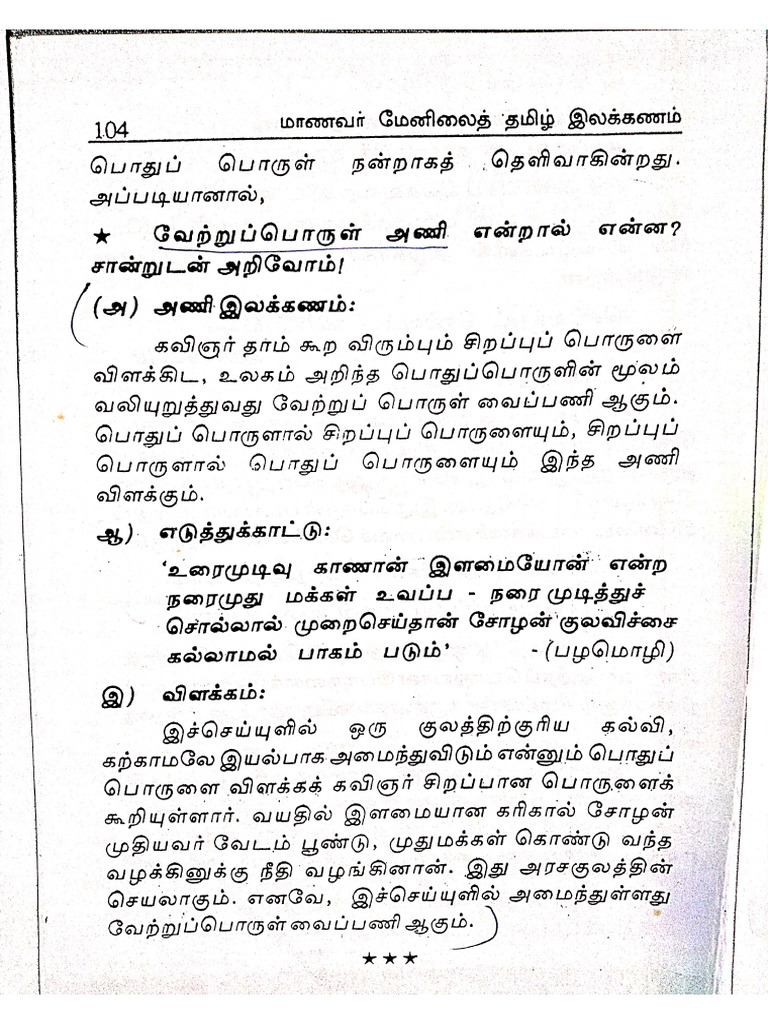 104 மாணவர் மேனிலைத் தமிழ் இலக்கணம்
பொதுப் பொருள் நன்றாகத் தெளிவாகின்றது.
அப்படியானால்,
★ வேற்றுப்பொருள் அணி என்றால் என்ன?
சான்றுடன் அறிவோம்!
(அ) அணி இலக்கணம்:
கவிஞர் தாம் கூற விரும்பும் சிறப்புப் பொருளை
விளக்கிட, உலகம் அறிந்த பொதுப்பொருளின் மூலம்
வலியுறுத்துவது வேற்றுப் பொருள் வைப்பணி ஆகும்.
பொதுப் பொருளால் சிறப்புப் பொருளையும், சிறப்புப்
பொருளால் பொதுப் பொருளையும் இந்த அணி
விளக்கும்.
ஆ) எடுத்துக்காட்டு:
‘உரைமுடிவு காணான் இளமையோன் என்ற
நரைமுது மக்கள் உவப்ப - நரை முடித்துச்
சொல்லால் முறைசெய்தான் சோழன் குலவிச்சை
கல்லாமல் பாகம் படும்’ - (பழமொழி)
இ) விளக்கம்:
இச்செய்யுளில் ஒரு குலத்திற்குரிய கல்வி,
கற்காமலே இயல்பாக அமைந்துவிடும் என்னும் பொதுப்
பொருளை விளக்கக் கவிஞர் சிறப்பான பொருளைக்
கூறியுள்ளார். வயதில் இளமையான கரிகால் சோழன்
முதியவர் வேடம் பூண்டு, முதுமக்கள் கொண்டு வந்த
வழக்கினுக்கு நீதி வழங்கினான். இது அரசகுலத்தின்
செயலாகும். எனவே, இச்செய்யுளில் அமைந்துள்ளது
வேற்றுப்பொருள் வைப்பணி ஆகும்.
★★★